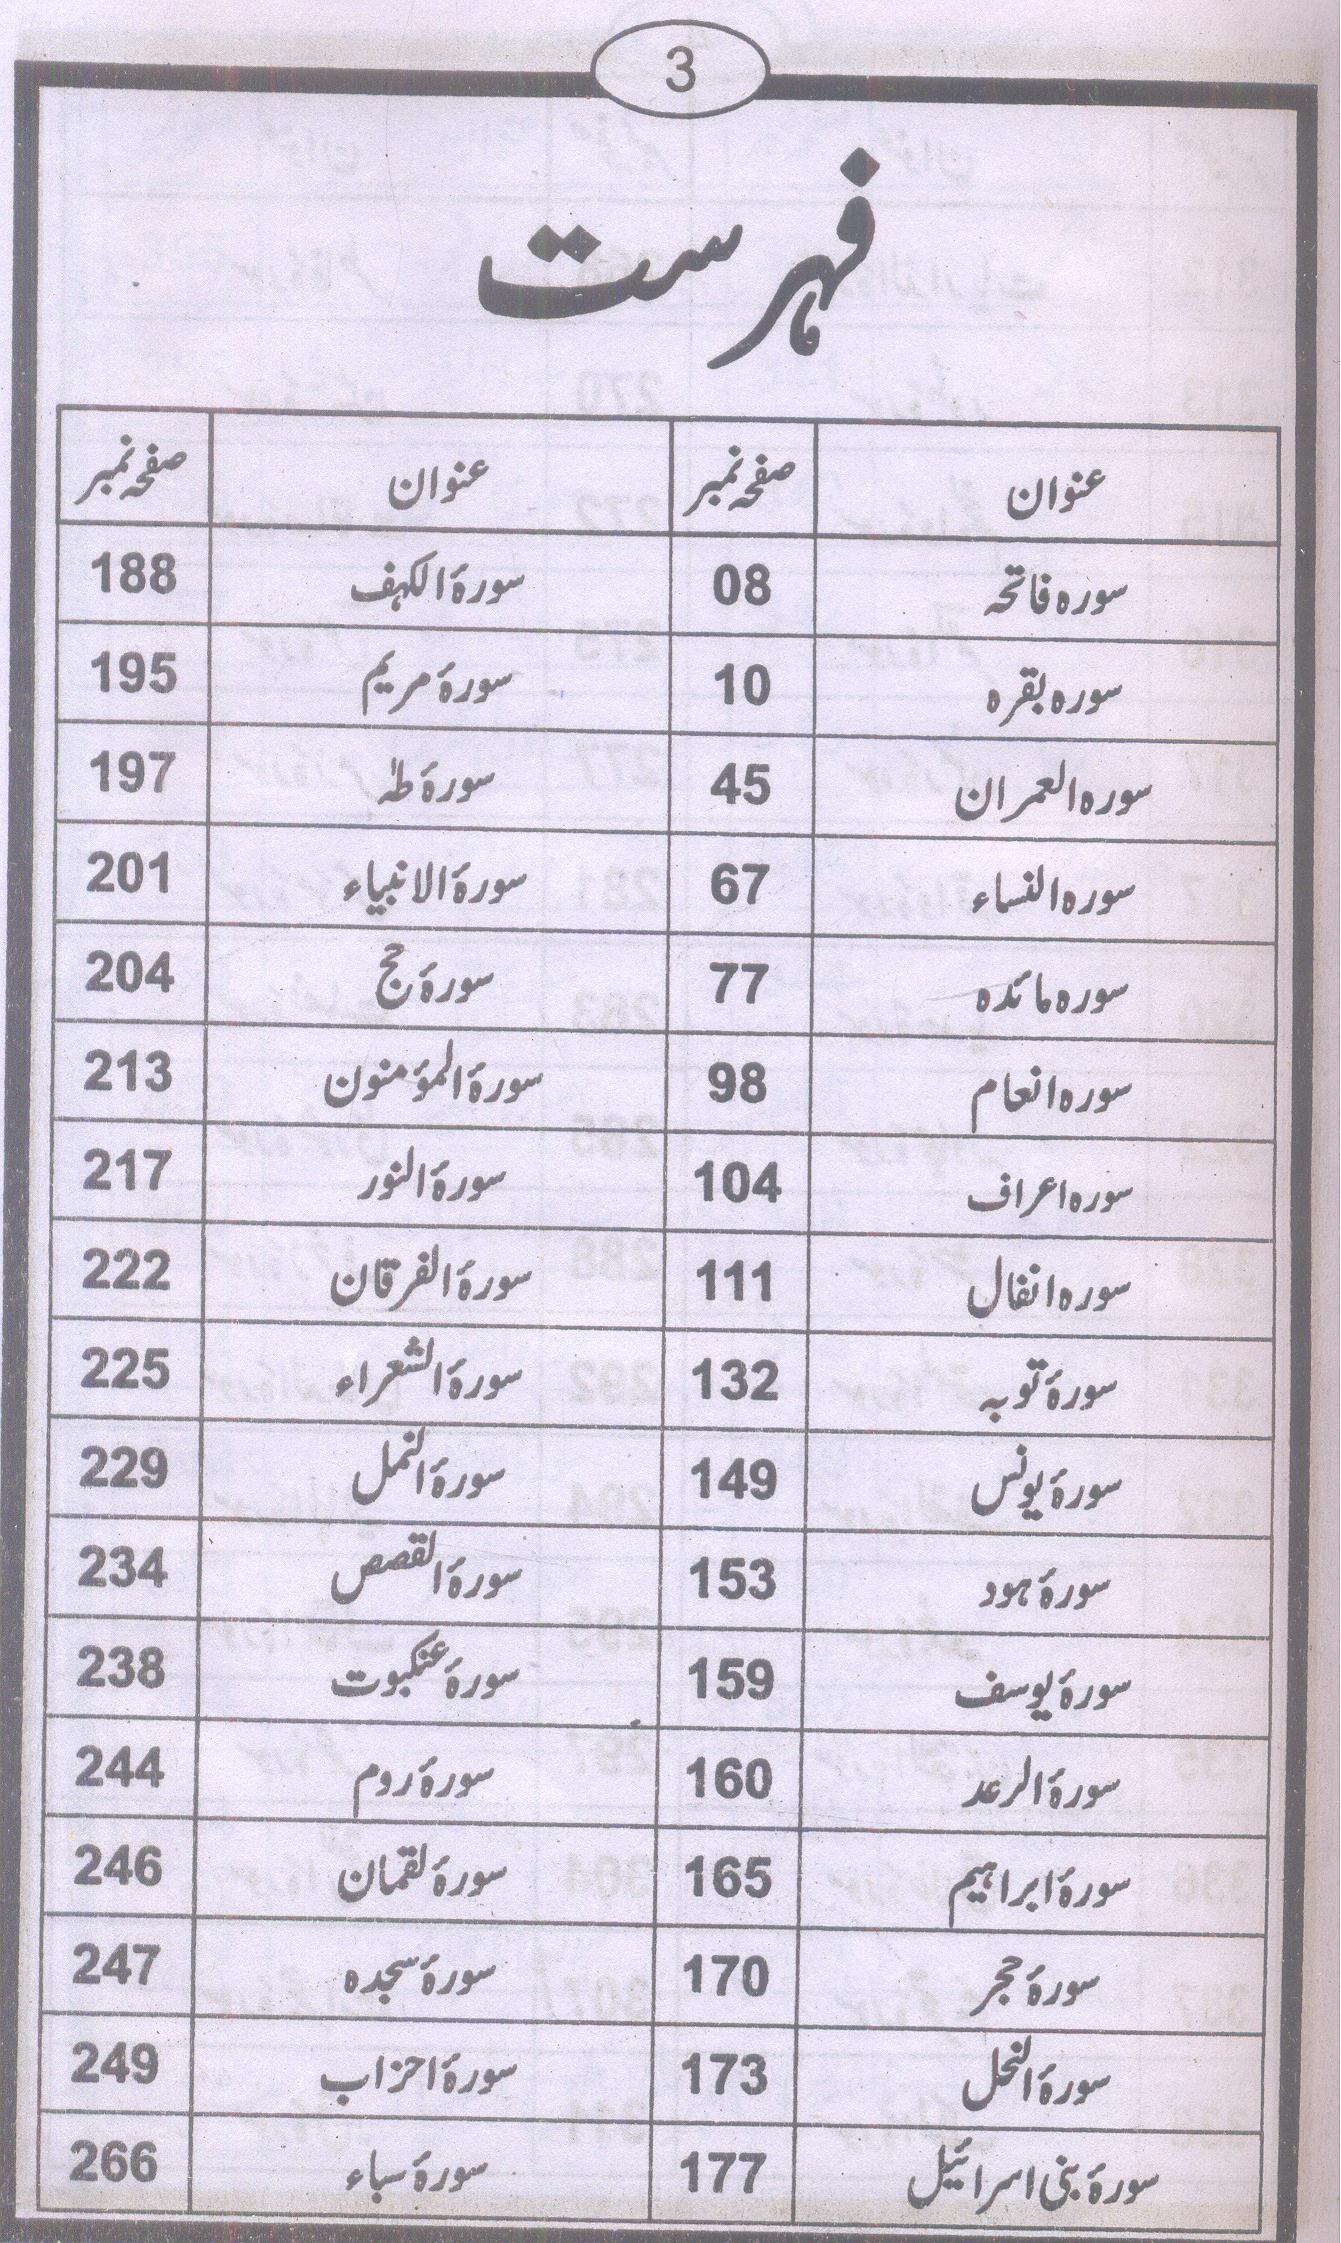 3
فہرست
عنوان صفحہ نمبر عنوان صفحہ نمبر
سورہ فاتحہ 08 سورۂ الکہف 188
سورہ بقرہ 10 سورۂ مریم 195
سورہ العمران 45 سورۂ طہٰ 197
سورہ النساء 67 سورۂ الانبیاء 201
سورہ مائدہ 77 سورۂ حج 204
سورہ انعام 98 سورۂ المؤمنون 213
سورہ اعراف 104 سورۂ النور 217
سورہ انفال 111 سورۂ الفرقان 222
سورۂ توبہ 132 سورۂ الشعراء 225
سورۂ یونس 149 سورۂ النمل 229
سورۂ ہود 153 سورۂ القصص 234
سورۂ یوسف 159 سورۂ عنکبوت 238
سورۂ الرعد 160 سورۂ روم 244
سورۂ ابراہیم 165 سورۂ لقمان 246
سورۂ حجر 170 سورۂ سجدہ 247
سورۂ النحل 173 سورۂ احزاب 249
سورۂ بنی اسرائیل 177 سورۂ سباء 266